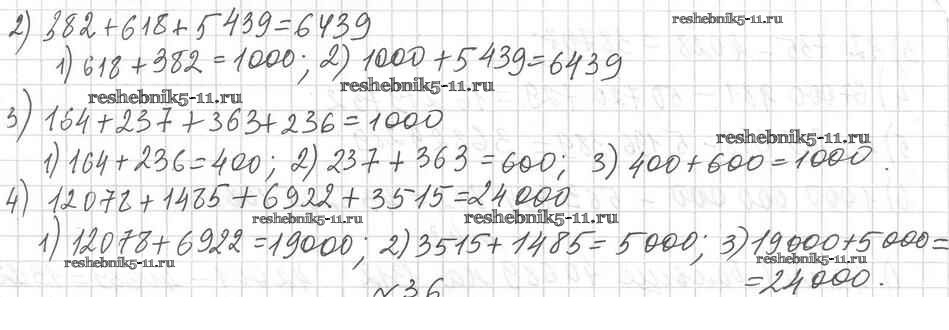 2) 382+618+5439=6439
reshebnik5-11.ru
1) 618+382=1000; 2) 1000+5439=6439
reshebnik5-11.ru
reshebnik5-11.ru
3) 164+237+363+236=1000
reshebnik5-11.ru
1) 164+236=400; 2) 237+363=600; 3) 400+600=1000.
4) 12078+1485+6922+3515=24000
reshebnik5-11.ru
reshebnik5-11.ru
1) 12078+6922=19000; 2) 3515+1485=5000; 3) 19000+5000=
reshebnik5-11.ru
reshebnik5-11.ru
=24000.
№36